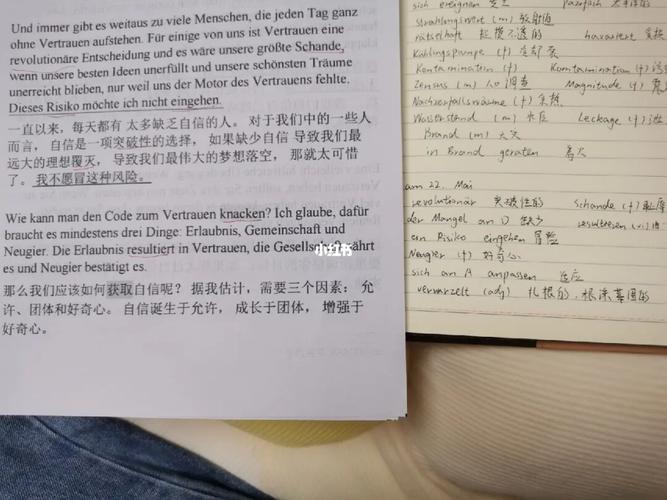 Und immer gibt es weitaus zu viele Menschen, die jeden Tag ganz
ohne Vertrauen aufstehen. Für einige von uns ist Vertrauen eine
revolutionäre Entscheidung und es wäre unsere größte Schande,
wenn unsere besten Ideen unerfüllt und unsere schönsten Träume
unerreicht blieben, nur weil uns der Motor des Vertrauens fehlte.
Dieses Risiko möchte ich nicht eingehen.
一直以来，每天都有 太多缺乏自信的人。 对于我们中的一些人
而言， 自信是一项突破性的选择， 如果缺少自信 导致我们最
远大的理想覆灭， 导致我们最伟大的梦想落空， 那就太可惜
了。我不愿冒这种风险。
Wie kann man den Code zum Vertrauen knacken? Ich glaube, dafür
braucht es mindestens drei Dinge: Erlaubnis, Gemeinschaft und
Neugier. Die Erlaubnis resultiert in Vertrauen, die Gesellschaft nährt
es und Neugier bestätigt es.
那么我们应该如何获取自信呢？ 据我估计，需要三个因素： 允
许、团体和好奇心。 自信诞生于允许， 成长于团体， 增强于
好奇心。
小红书
sich ereignen 发生
strahlungswert (m) 放射值
rätselhaft 捉摸不透的
Kühlungspumpe (f) 冷却泵
Kontamination (f) Kontamination (f) 污
Zensus (m) 人口调查 Magnitude (f) 震
Nachzerfallswärme (f) 余热
Wasserstand (m) 水位 Leckage (f) 泄
Brand (m) 大火
in Brand geraten 着火
am 22. Mai
revolutionär 突破性的 schande (f) 耻辱
der Mangel an D 缺少 resultieren
ein Risiko eingehen 冒险
Neugier (f) 好奇心
sich an A anpassen 适应
verwurzelt (adj) 扎根的，根深蒂固的